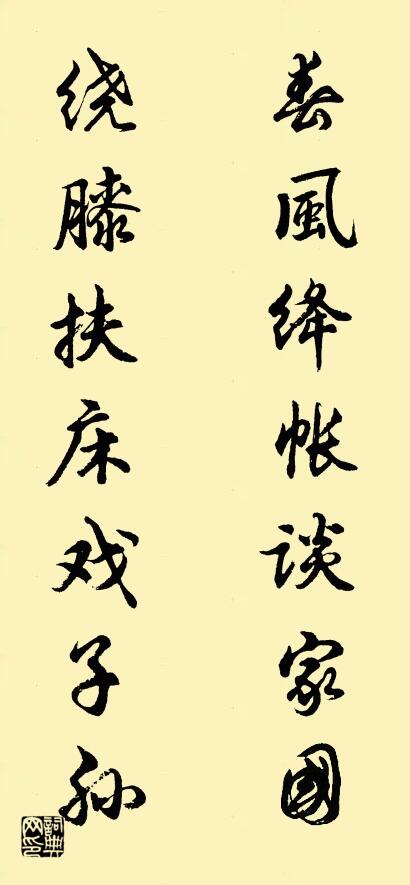 春風绛帐谈家國
绕膝扶床戏子孙
詞典网印